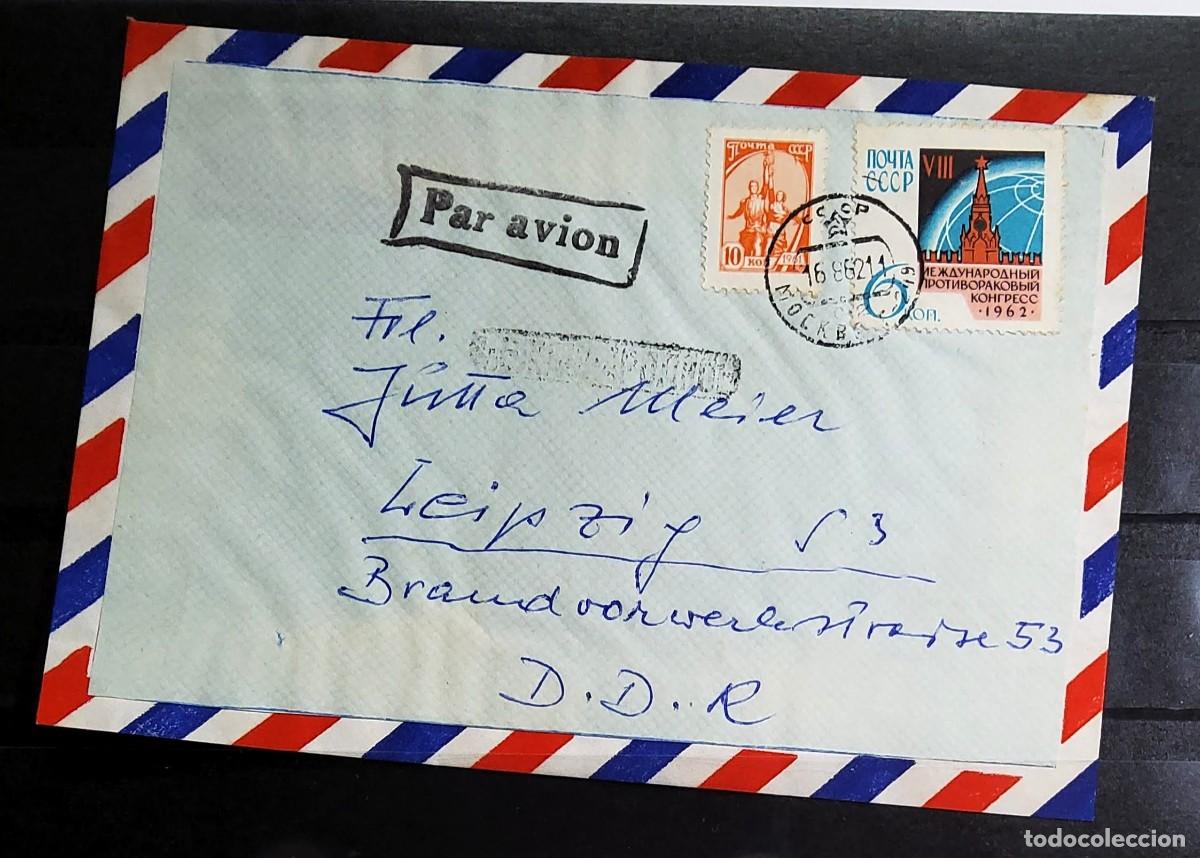 Par avion
почта СССР
10 коп 1961
ПОЧТА
СССР
VIII
МЕЖДУНАРОДНЫЙ
ПРОТИВОРАКОВЫЙ
КОНГРЕСС
·1962·
6 КОП.
СССР
16 8 62 11
МОСКВА
Frl.
Jutta Meier
Leipzig S 3
Brandvorwerkstrasse 53
D.D.R
todocoleccion